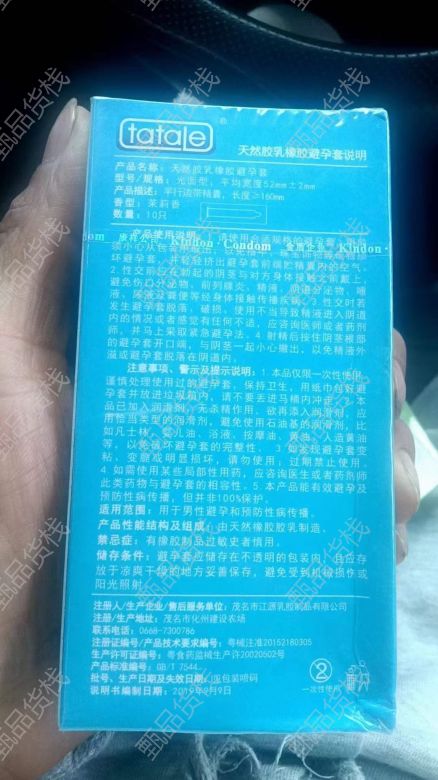 tatale
天然胶乳橡胶避孕套说明
产品名称：天然胶乳橡胶避孕套
型号/规格：光面型，平均宽度52mm±2mm
产品描述：平行边带精囊，长度≥160mm
香型：茉莉香
数量：10只
产品使用说明：
Kindon Condom
Kindon
坏避孕套，并轻轻挤出避孕套前端贮精囊内的空气。
2.性交前应在勃起的阴茎与对方身体接触之前戴上，
避免伤口分泌物、前列腺炎、精液、阴道分泌物、唾
液、尿液及粪便等经身体接触传播疾病。3.性交时若
发生避孕套脱落、破损、使用不当导致精液进入阴道
内的情况或者感觉有任何不适，应咨询医师或者药剂
师，并马上采取紧急避孕法。4.射精后按住阴茎根部
的避孕套开口端，与阴茎一起小心撤出，以免精液外
溢或避孕套脱落在阴道内。
注意事项、警示及提示说明：1.本品仅限一次性使用，
谨慎处理使用过的避孕套，保持卫生，用纸巾包好避
孕套并放进垃圾箱内，请不要丢进马桶内冲走。2.本
品已加入润滑剂，无杀精作用，欲再添入润滑剂，应
用恰当类型的润滑剂，避免使用石油基的润滑剂，比
如凡士林、婴儿油、浴液、按摩油、黄油、人造黄油
等，以免破坏避孕套的完整性。3.如发现避孕套变
粘、变脆或明显损坏，请勿使用；过期禁止使用。
4.如需使用某些局部性用药，应咨询医生或者药剂师
此类药物与避孕套的相容性。5.本产品能有效避孕及
预防性病传播，但并非100%保护。
适用范围：用于男性避孕和预防性病传播。
产品性能结构及组成：由天然橡胶胶乳制造。
禁忌症：有橡胶制品过敏史者慎用。
储存条件：避孕套应储存在不透明的包装内，且应存
放于凉爽干燥的地方妥善保存，避免受到机械损伤或
阳光照射。
注册人/生产企业/售后服务单位：茂名市江源乳胶制品有限公司
注册/生产地址：茂名市化州建设农场
联系电话：0668-7300786
注册证编号/产品技术要求编号：粤械注准20152180305
生产许可证编号：粤食药监械生产许20020502号
产品标准编号：GB/T 7544
批号、生产日期及失效日期：面包装喷码
说明书编制日期：2019年9月9日
2
一次性使用
甄品货栈